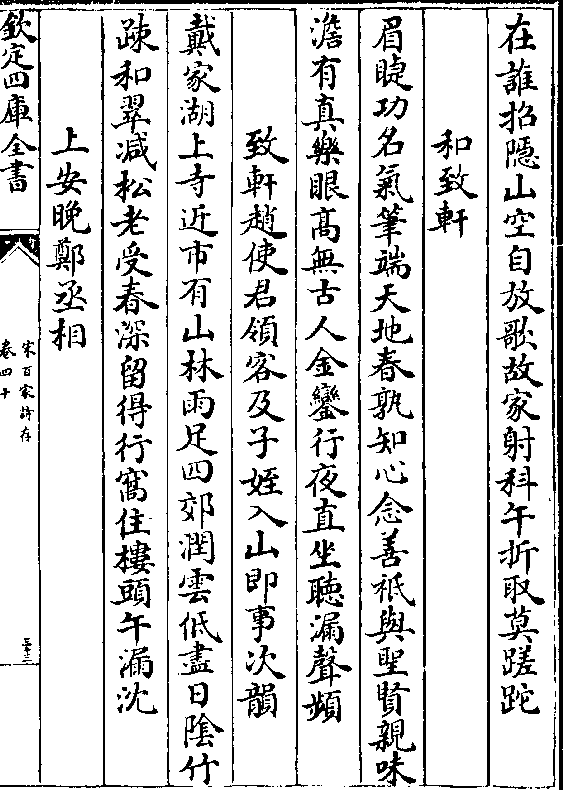 在誰招隠山空自放歌故家射科午折取莫蹉跎
和致軒
眉睫功名氣筆端天地春孰知心念善祇與聖賢親味
澹有真樂眼髙無古人金鑾行夜直坐聽漏聲頻
致軒趙使君領客及子姪入山即事次韻
戴家湖上寺近市有山林雨足四郊潤雲低盡日陰竹
疎和翠减松老受春深留得行窩住樓頭午漏沈
上安晩鄭丞相
欽定四庫全書
宋百家詩存
卷四十
三十三